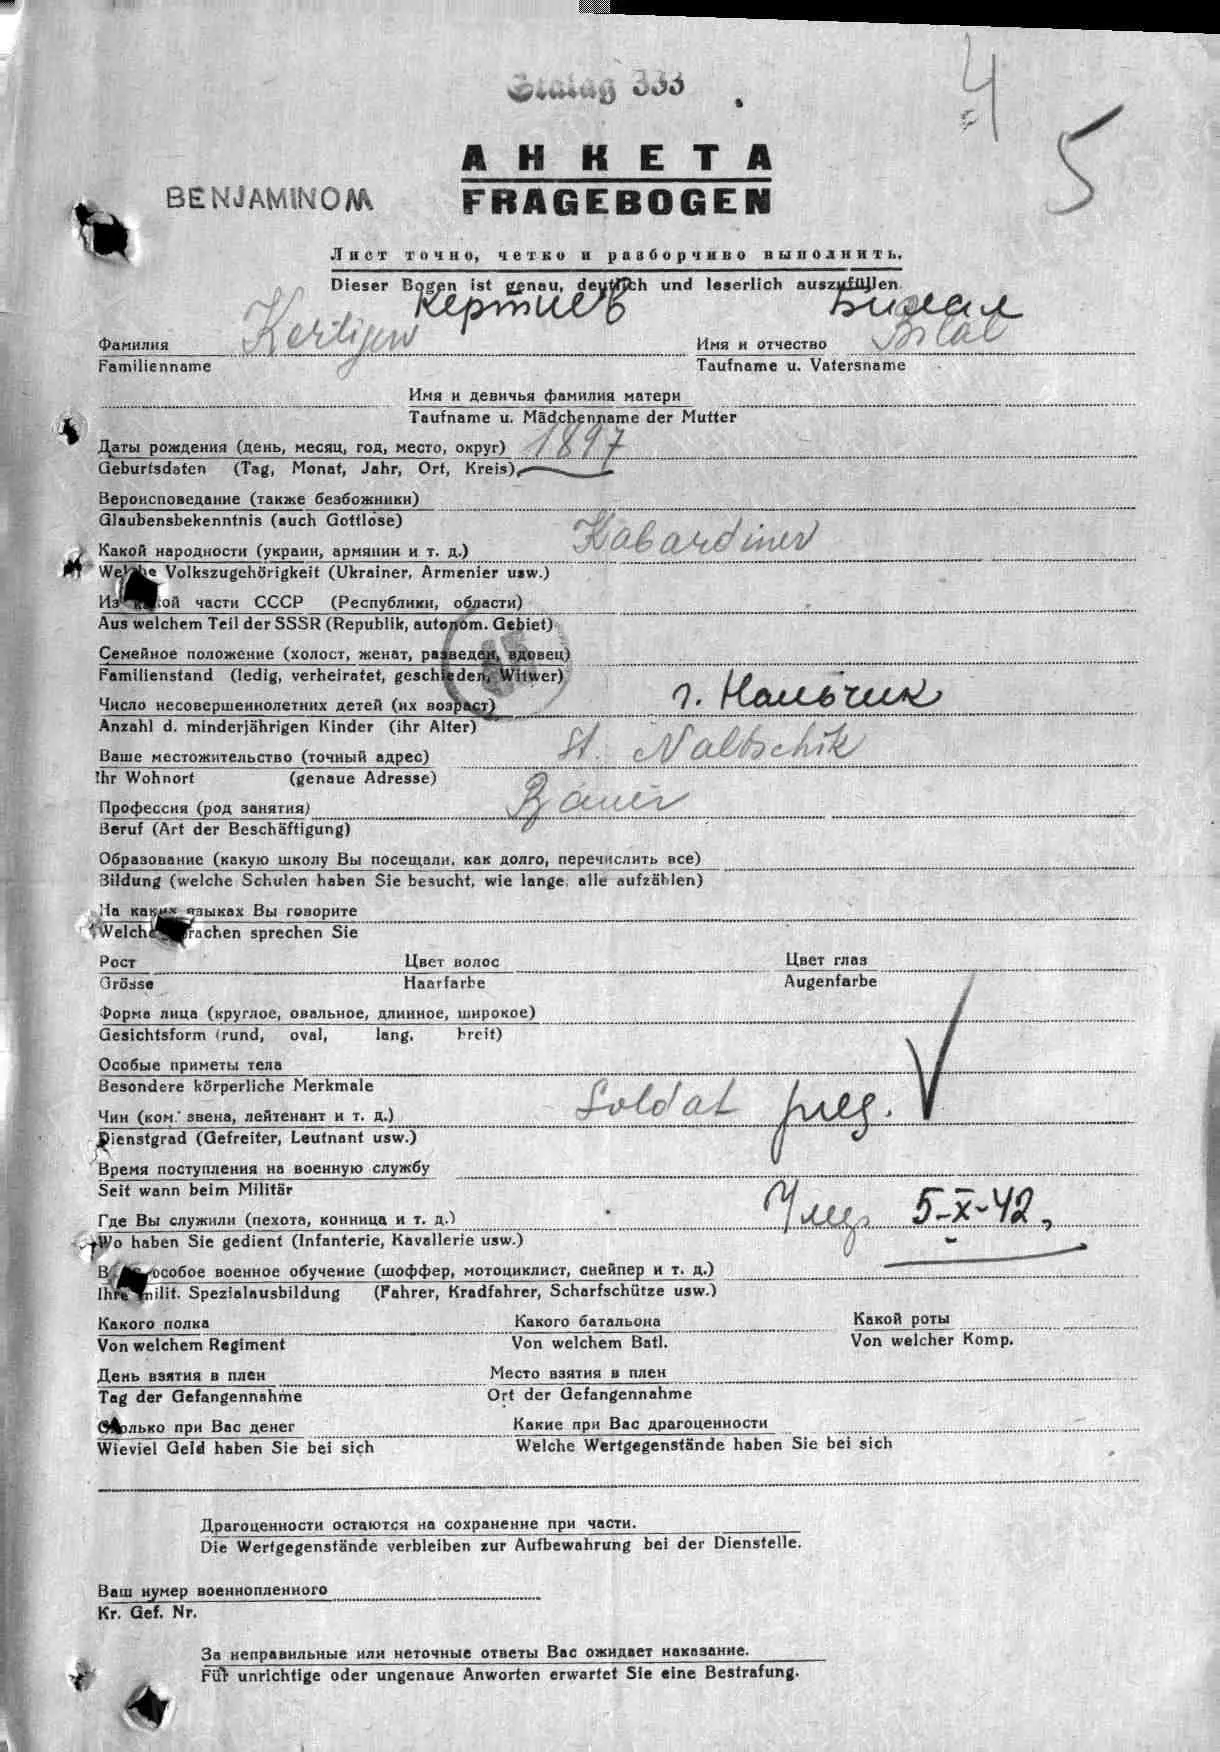 Stalag 333
4
5
АНКЕТА
FRAGEBOGEN
BENJAMINOM
Лист точно, четко и разборчиво выполнить.
Dieser Bogen ist genau, deutlich und leserlich auszufüllen.
Кертиев Билал
Фамилия Kertijew Имя и отчество Bilal
Familienname Taufname u. Vatersname
Имя и девичья фамилия матери
Taufname u. Mädchenname der Mutter
Даты рождения (день, месяц, год, место, округ) 1897
Geburtsdaten (Tag, Monat, Jahr, Ort, Kreis)
Вероисповедание (также безбожники)
Glaubensbekenntnis (auch Gottlose)
Какой народности (украин, армянин и т. д.) Kabardiner
Welche Volkszugehörigkeit (Ukrainer, Armenier usw.)
Из какой части СССР (Республики, области)
Aus welchem Teil der SSSR (Republik, autonom. Gebiet)
Семейное положение (холост, женат, разведен, вдовец)
Familienstand (ledig, verheiratet, geschieden, Witwer)
Число несовершеннолетних детей (их возраст) г. Нальчик
Anzahl d. minderjährigen Kinder (ihr Alter)
Ваше местожительство (точный адрес) St. Naltschik
Ihr Wohnort (genaue Adresse)
Профессия (род занятия) Bauer
Beruf (Art der Beschäftigung)
Образование (какую школу Вы посещали, как долго, перечислить все)
Bildung (welche Schulen haben Sie besucht, wie lange, alle aufzählen)
На каких языках Вы говорите
Welche Sprachen sprechen Sie
Рост Цвет волос Цвет глаз
Grösse Haarfarbe Augenfarbe
Форма лица (круглое, овальное, длинное, широкое)
Gesichtsform (rund, oval, lang, breit)
Особые приметы тела
Besondere körperliche Merkmale
Чин (ком. звена, лейтенант и т. д.) Soldat
Dienstgrad (Gefreiter, Leutnant usw.)
Время поступления на военную службу
Seit wann beim Militär
Где Вы служили (пехота, конница и т. д.) 5-X-42
Wo haben Sie gedient (Infanterie, Kavallerie usw.)
особое военное обучение (шоффер, мотоциклист, снейпер и т. д.)
Ihre milit. Spezialausbildung (Fahrer, Kradfahrer, Scharfschütze usw.)
Какого полка Какого батальона Какой роты
Von welchem Regiment Von welchem Batl. Von welcher Komp.
День взятия в плен Место взятия в плен
Tag der Gefangennahme Ort der Gefangennahme
Сколько при Вас денег Какие при Вас драгоценности
Wieviel Geld haben Sie bei sich Welche Wertgegenstände haben Sie bei sich
Драгоценности остаются на сохранение при части.
Die Wertgegenstände verbleiben zur Aufbewahrung bei der Dienstelle.
Ваш нумер военнопленного
Kr. Gef. Nr.
За неправильные или неточные ответы Вас ожидает наказание.
Für unrichtige oder ungenaue Anworten erwartet Sie eine Bestrafung.